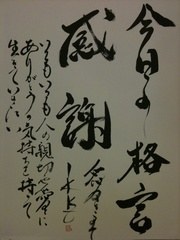 今日の格言
感謝
いつもいつも人の親切や愛に
ありがとうの気持ちを持って
生きていきたい